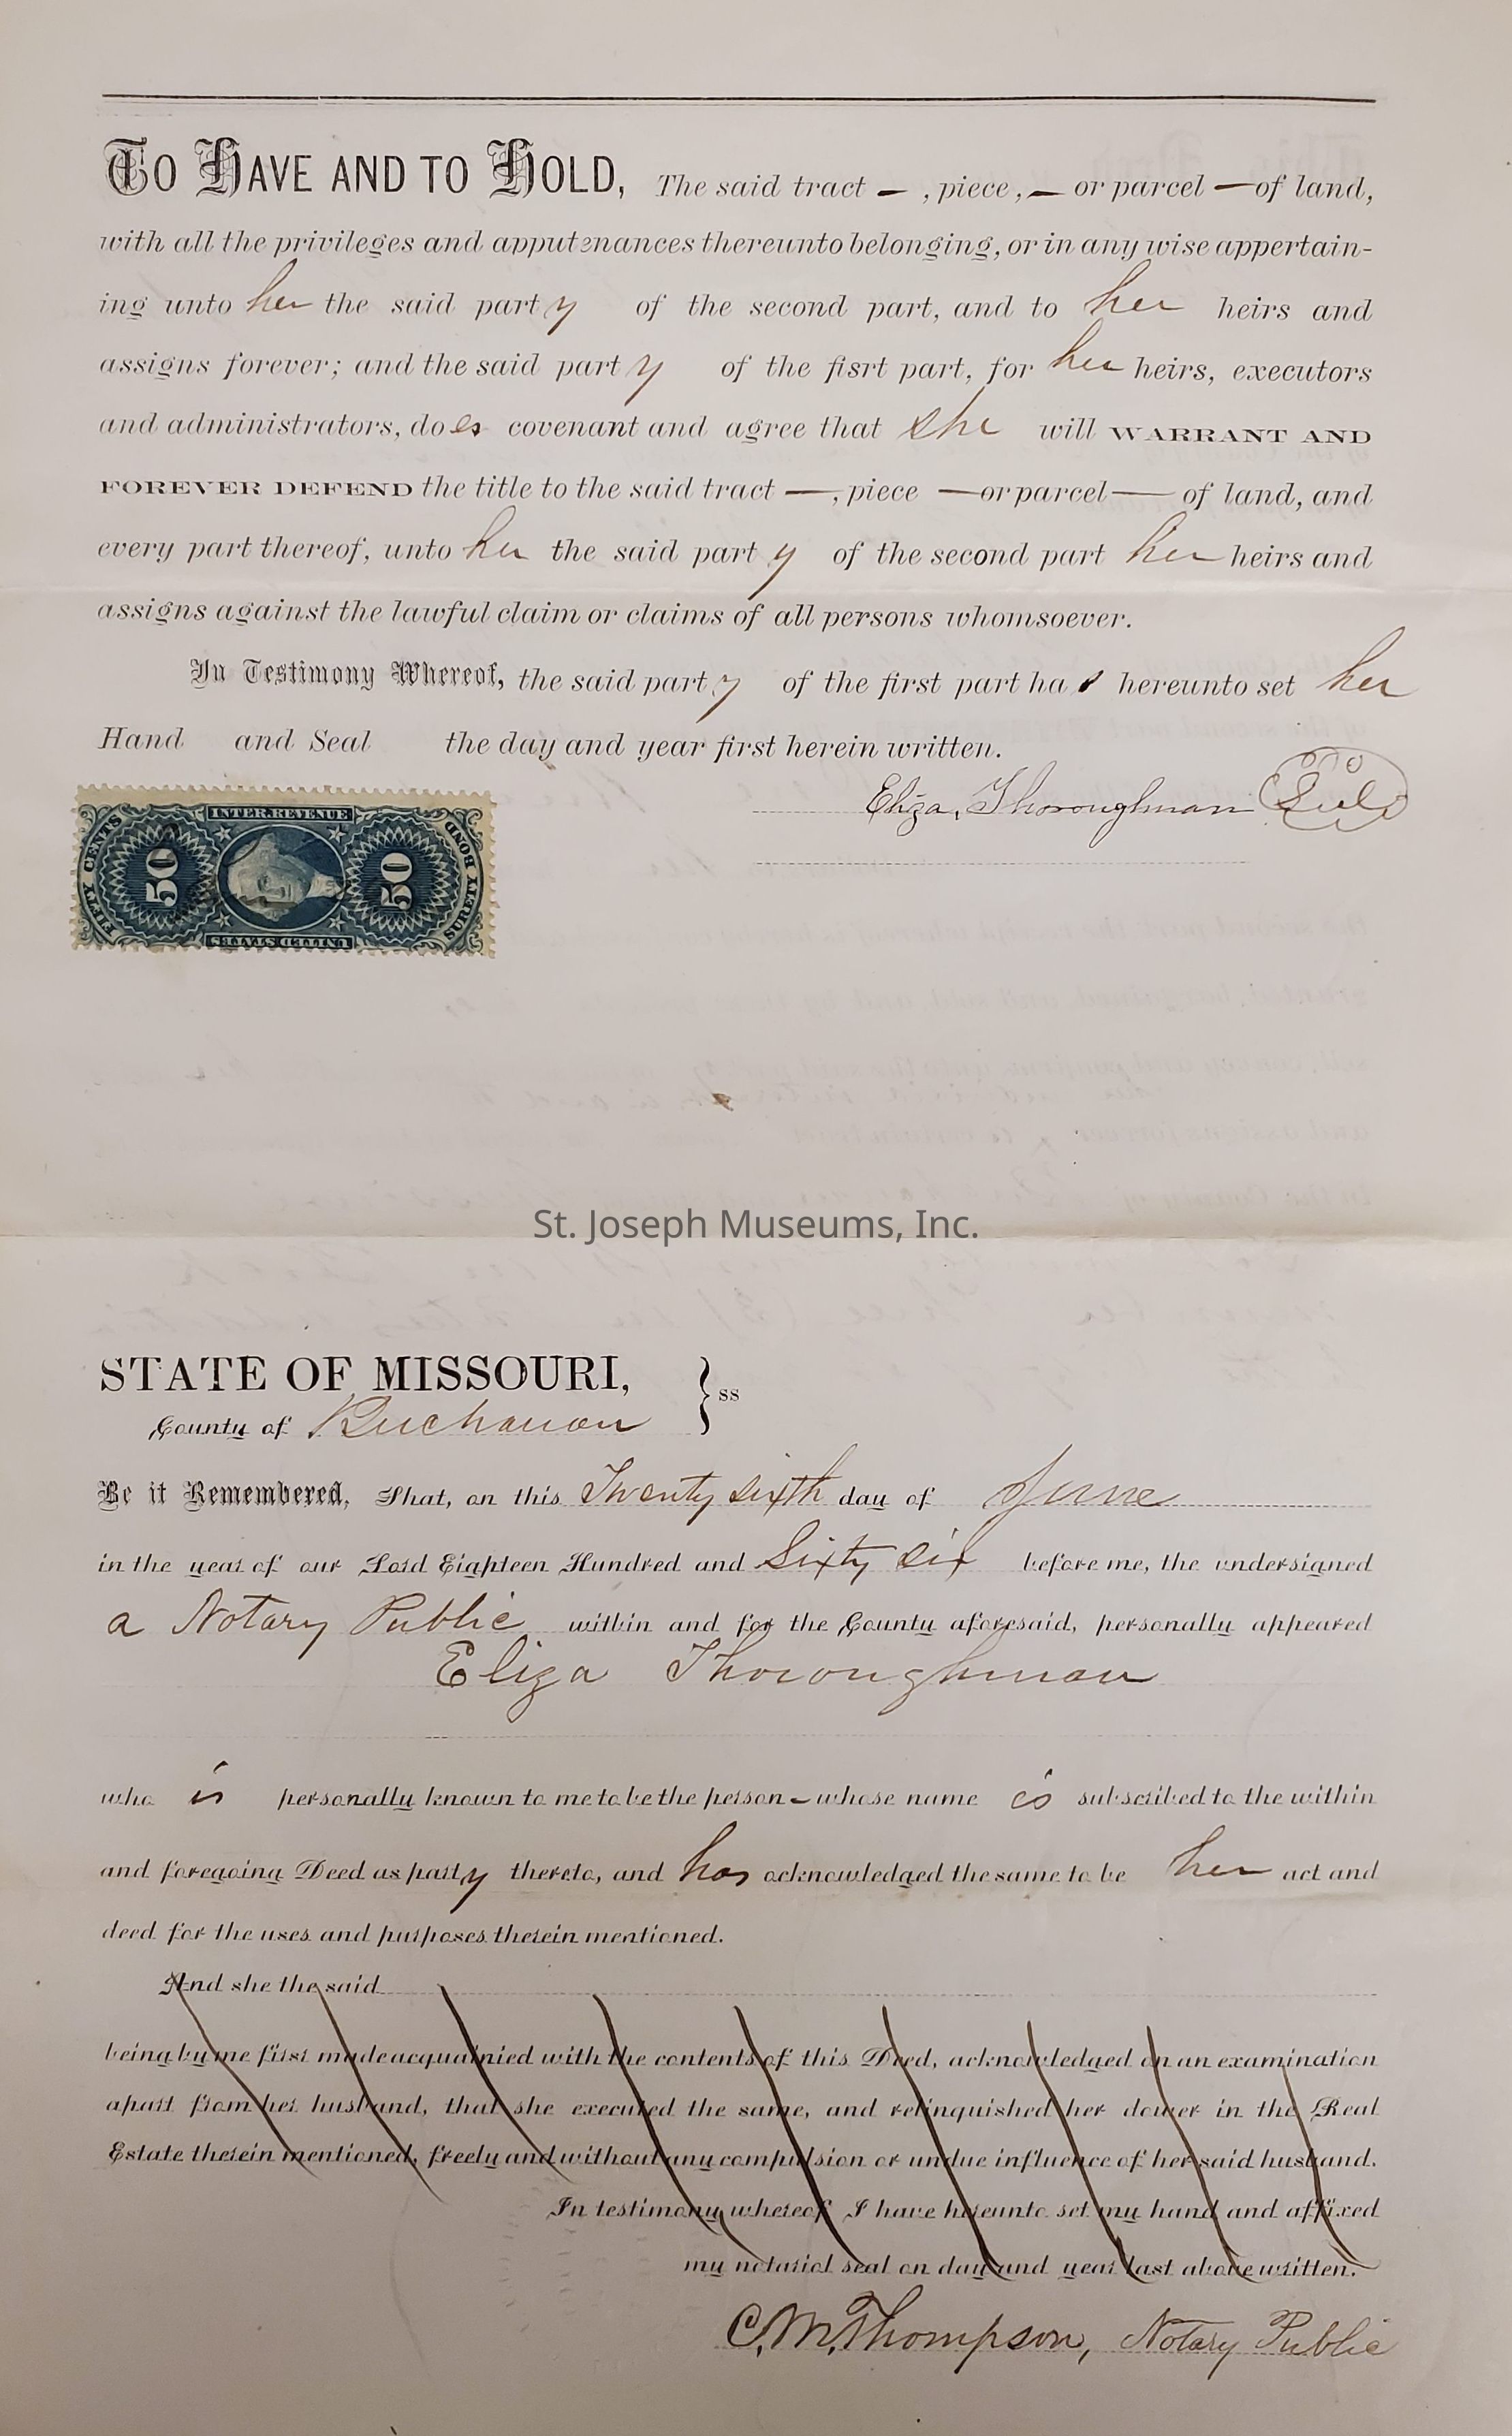 TO HAVE AND TO HOLD, The said tract — , piece, — or parcel — of land,
with all the privileges and apputenances thereunto belonging, or in any wise appertain-
ing unto her the said party of the second part, and to her heirs and
assigns forever; and the said party of the fisrt part, for her heirs, executors
and administrators, does covenant and agree that she will WARRANT AND
FOREVER DEFEND the title to the said tract —, piece — or parcel — of land, and
every part thereof, unto her the said party of the second part her heirs and
assigns against the lawful claim or claims of all persons whomsoever.
In Testimony Whereof, the said party of the first part has hereunto set her
Hand and Seal the day and year first herein written.
Eliza, Thoroughman Seal
INTER. REVENUE
FIFTY CENTS
50
50
SURETY BOND
UNITED STATES
St. Joseph Museums, Inc.
STATE OF MISSOURI,
County of Buchanan } ss
Be it Remembered, That, on this Twenty sixth day of June
in the year of our Lord Eighteen Hundred and Sixty six before me, the undersigned
a Notary Public within and for the County aforesaid, personally appeared
Eliza Thoroughman
who is personally known to me to be the person — whose name is subscribed to the within
and foregoing Deed as party thereto, and has acknowledged the same to be her act and
deed for the uses and purposes therein mentioned.
And she the said
being by me first made acquainied with the contents of this Deed, acknowledged on an examination
apart from her husband, that she executed the same, and relinquished her dower in the Real
Estate therein mentioned, freely and without any compulsion or undue influence of her said husband.
In testimony whereof I have hereunto set my hand and affixed
my notarial seal on day and year last above written.
C. M. Thompson, Notary Public